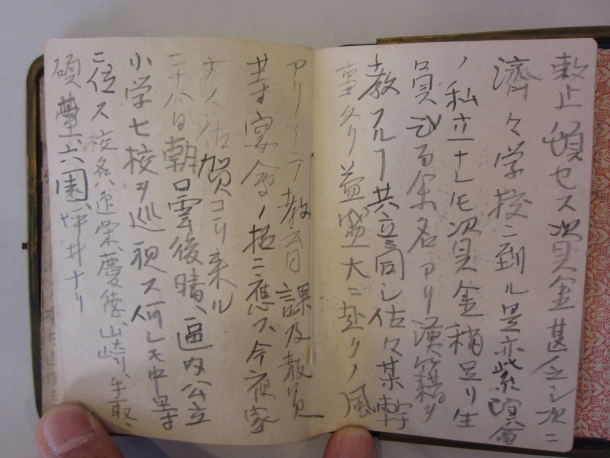 止頓セス資金甚乏シ次ニ
済々学校ニ到ル是亦紫溟会
ノ私立ナレ𪜈資金稍足リ生
員百余名アリ漢籍ヲ
教フルヿ共立ト同シ佐々某幹
事タリ益盛大ニ赴クノ風
アリ了テ教育課及教員
等宴会ノ招ニ應ス今夜
佐賀ヨリ来ル
二十八日朝曇後晴、区内公立
小学七校ヲ巡視ス何レモ中等
ニ位ス校名慶徳、山崎、
碩台、坪井ナリ